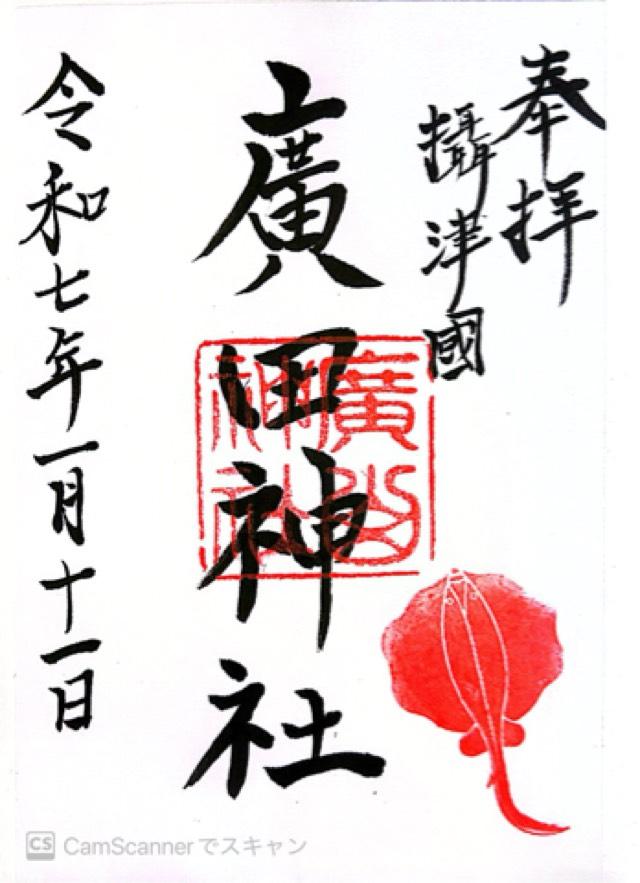 奉拝
攝津國
廣田神社
令和七年一月十一日
CS CamScannerでスキャン